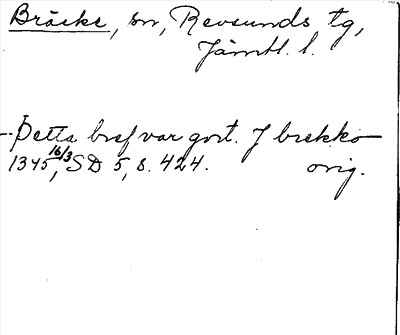 Bräcke, sn, Revsunds tg,
Jämtl. l.
-- Þetta bref var gort. J brekko
1345 16/3, SD 5, s. 424. orig.